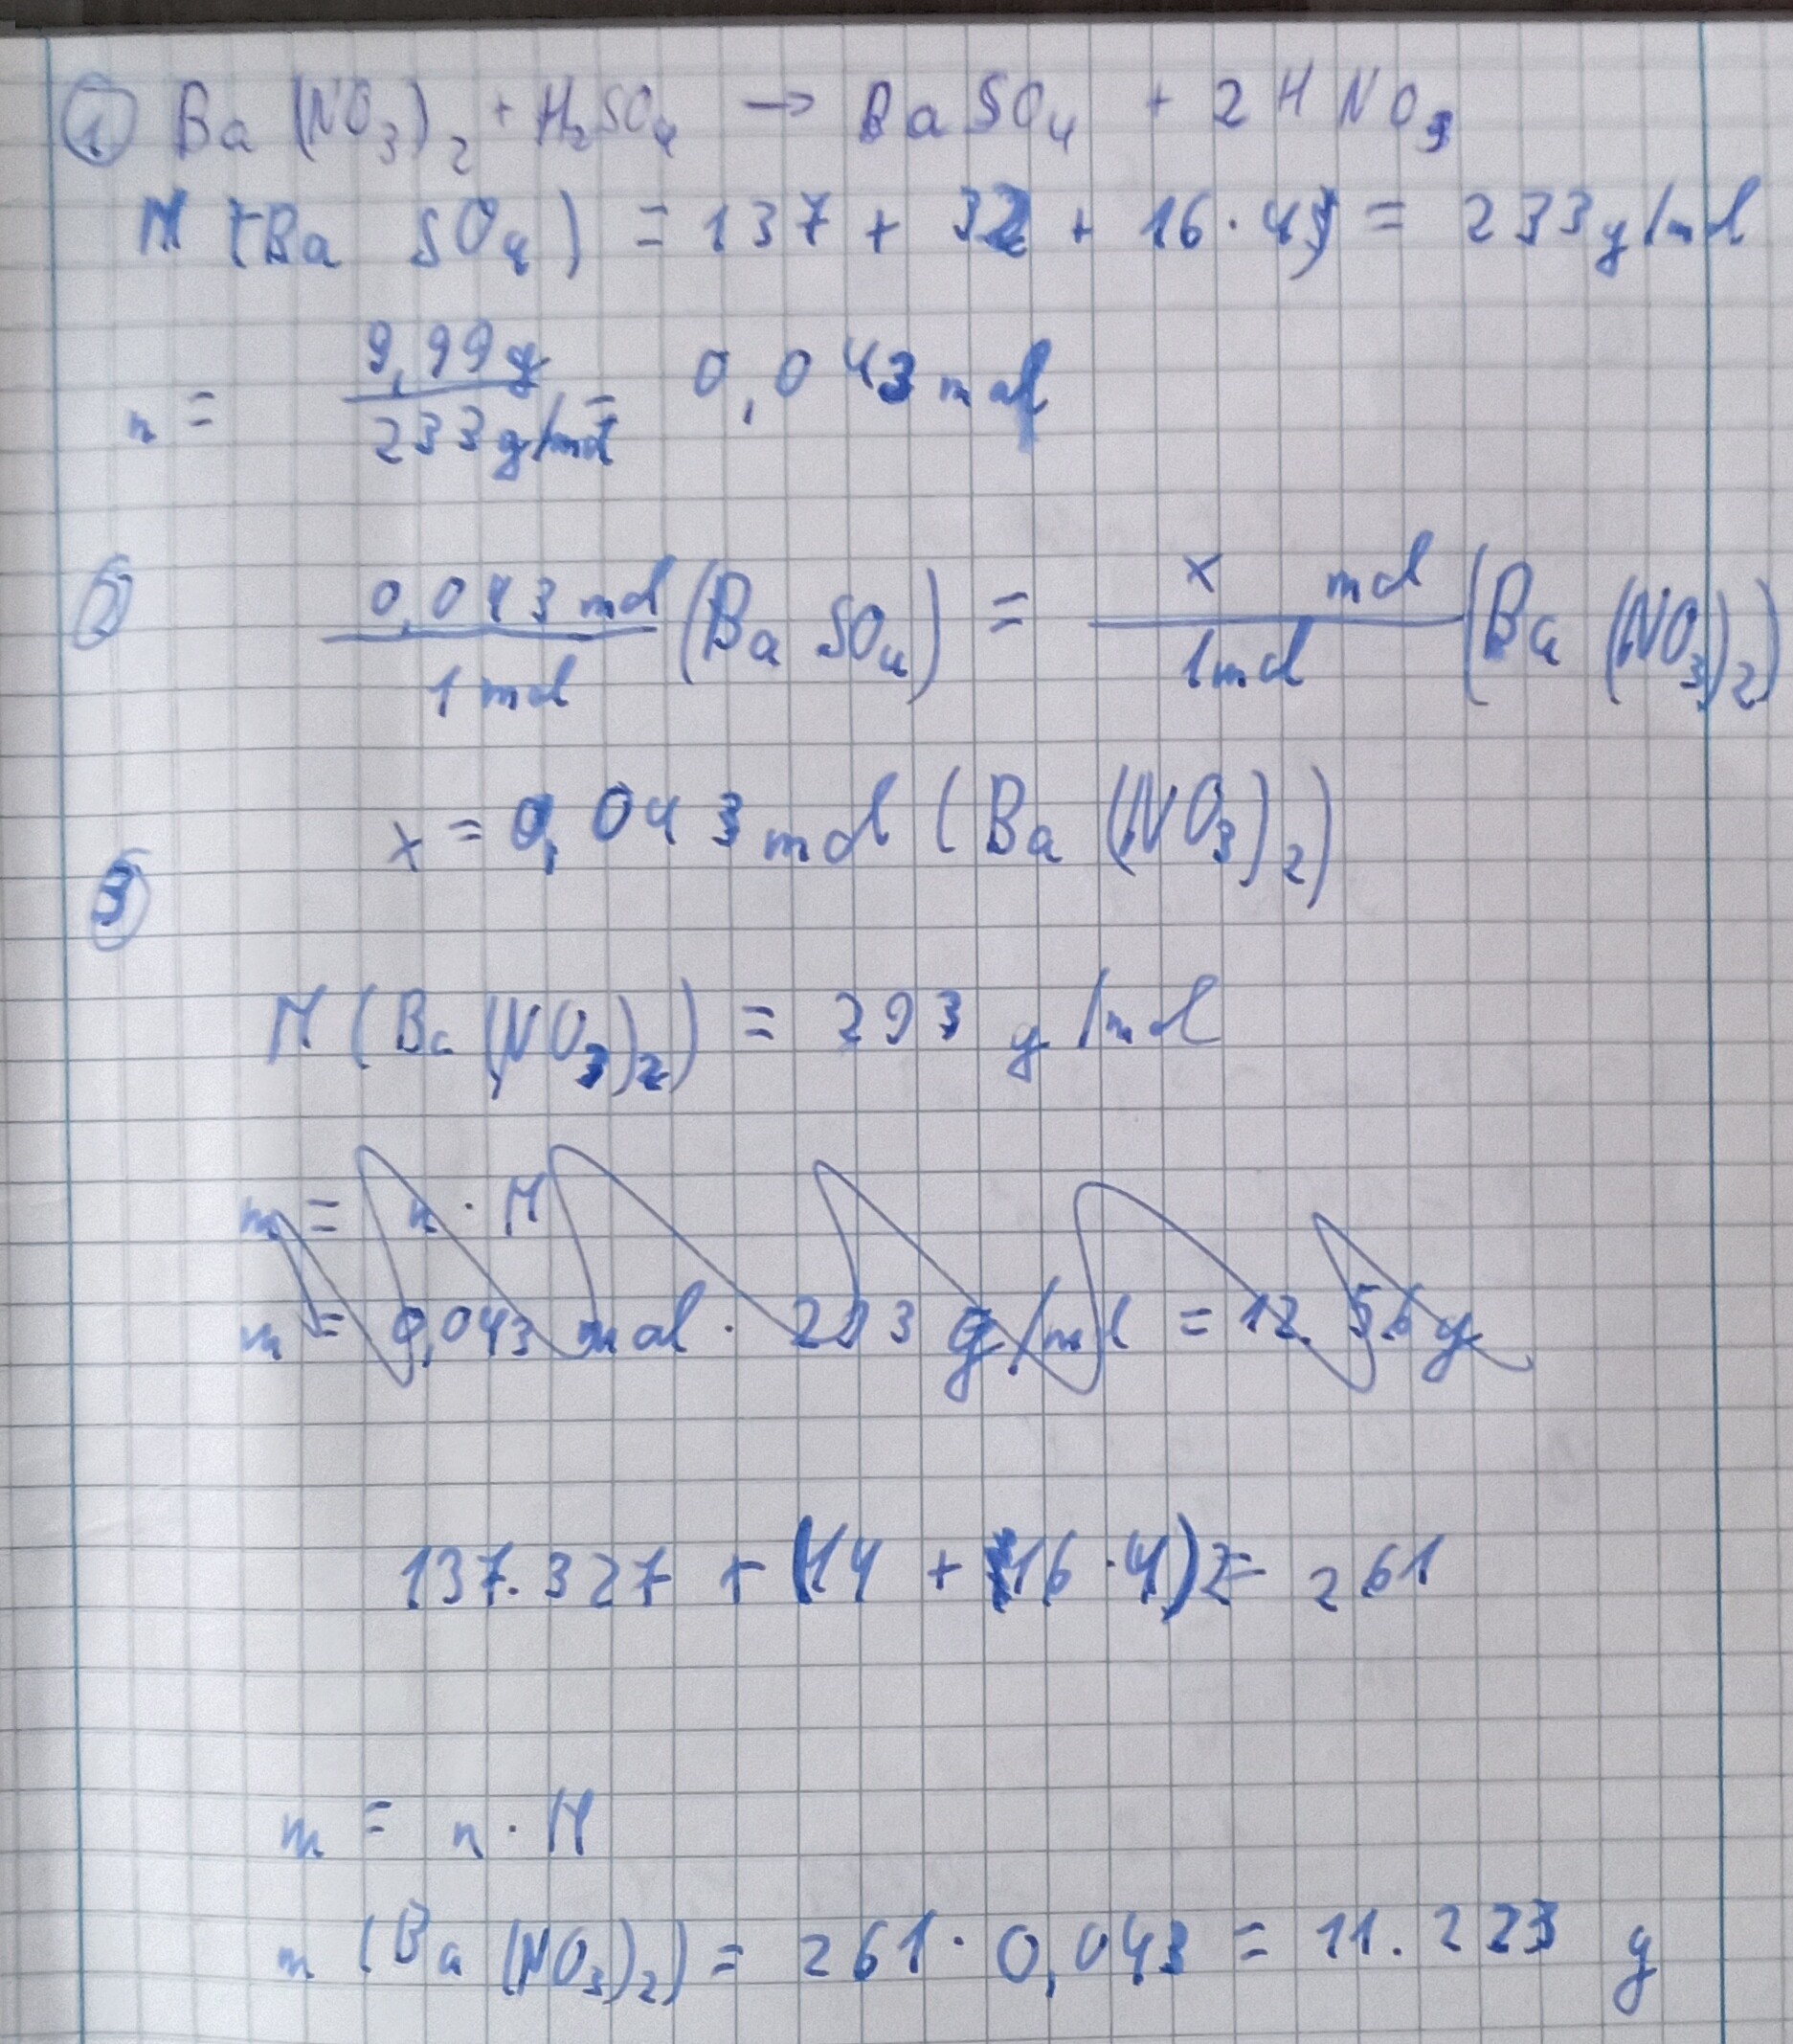 ① Ba(NO₃)₂ + H₂SO₄ → BaSO₄ + 2HNO₃
M (Ba SO₄) = 137 + 32 + 16·4) = 233 g/mol
n = 9,99 g / 233 g/mol = 0,043 mol
② 0,043 mol / 1 mol (Ba SO₄) = x mol / 1 mol (Ba (NO₃)₂)
x = 0,043 mol (Ba (NO₃)₂)
③
M (Ba (NO₃)₂) = 293 g/mol
m = n · M
m = 0,043 mol · 293 g/mol = 12.56 g
137.327 + (14 + 16·4)2 = 261
m = n · M
m (Ba (NO₃)₂) = 261 · 0,043 = 11.223 g